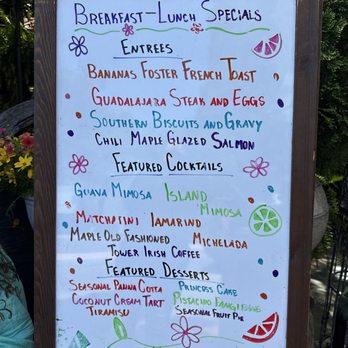 Breakfast-Lunch Specials
Entrees
Bananas Foster French Toast
Guadalajara Steak and Eggs
Southern Biscuits and Gravy
Chili Maple Glazed Salmon
Featured Cocktails
Guava Mimosa Island Mimosa
Matchatini Tamarind
Maple Old Fashioned Michelada
Tower Irish Coffee
Featured Desserts
Seasonal Panna Cotta Princess Cake
Coconut Cream Tart Pistachio
Tiramisu Seasonal Fruit Pie